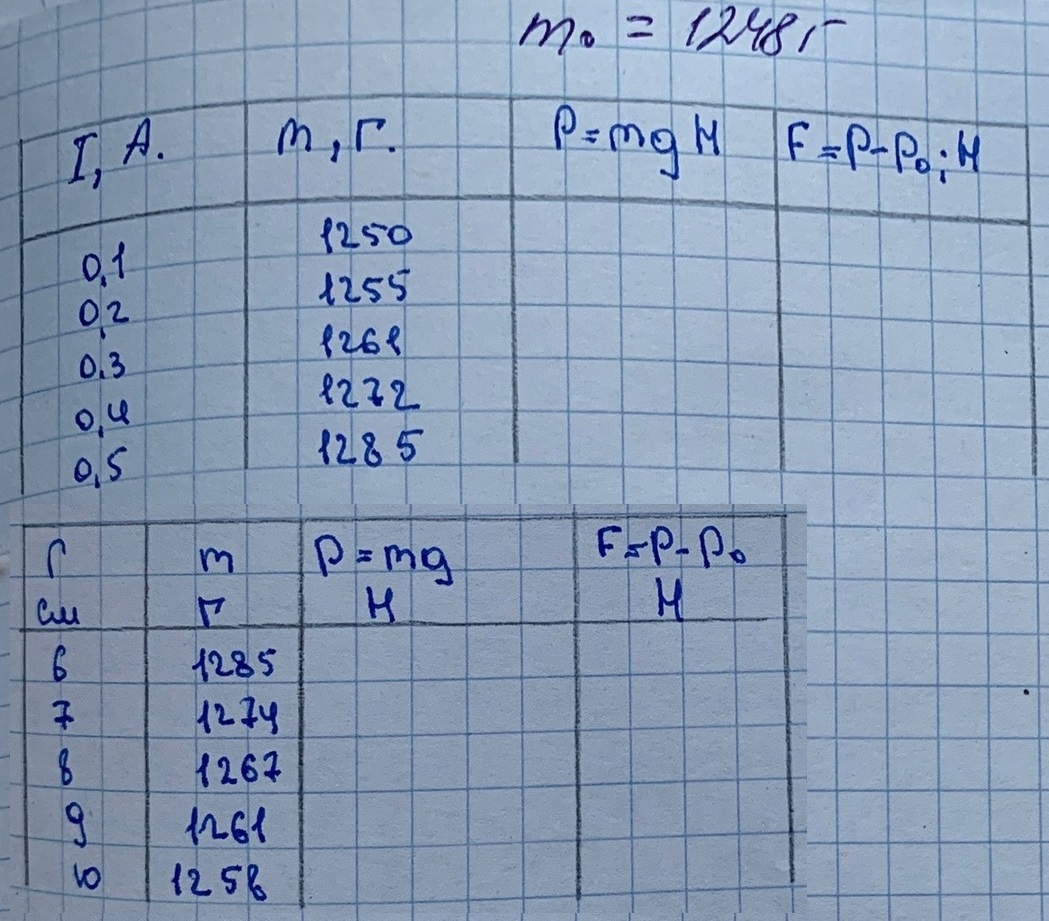 m₀ = 1248 г
I, А. m, г. P=mg Н F=P-P₀; Н
0,1 1250
0,2 1255
0,3 1261
0,4 1272
0,5 1285
r m P=mg F=P-P₀
см г Н Н
6 1285
7 1274
8 1267
9 1261
10 1258